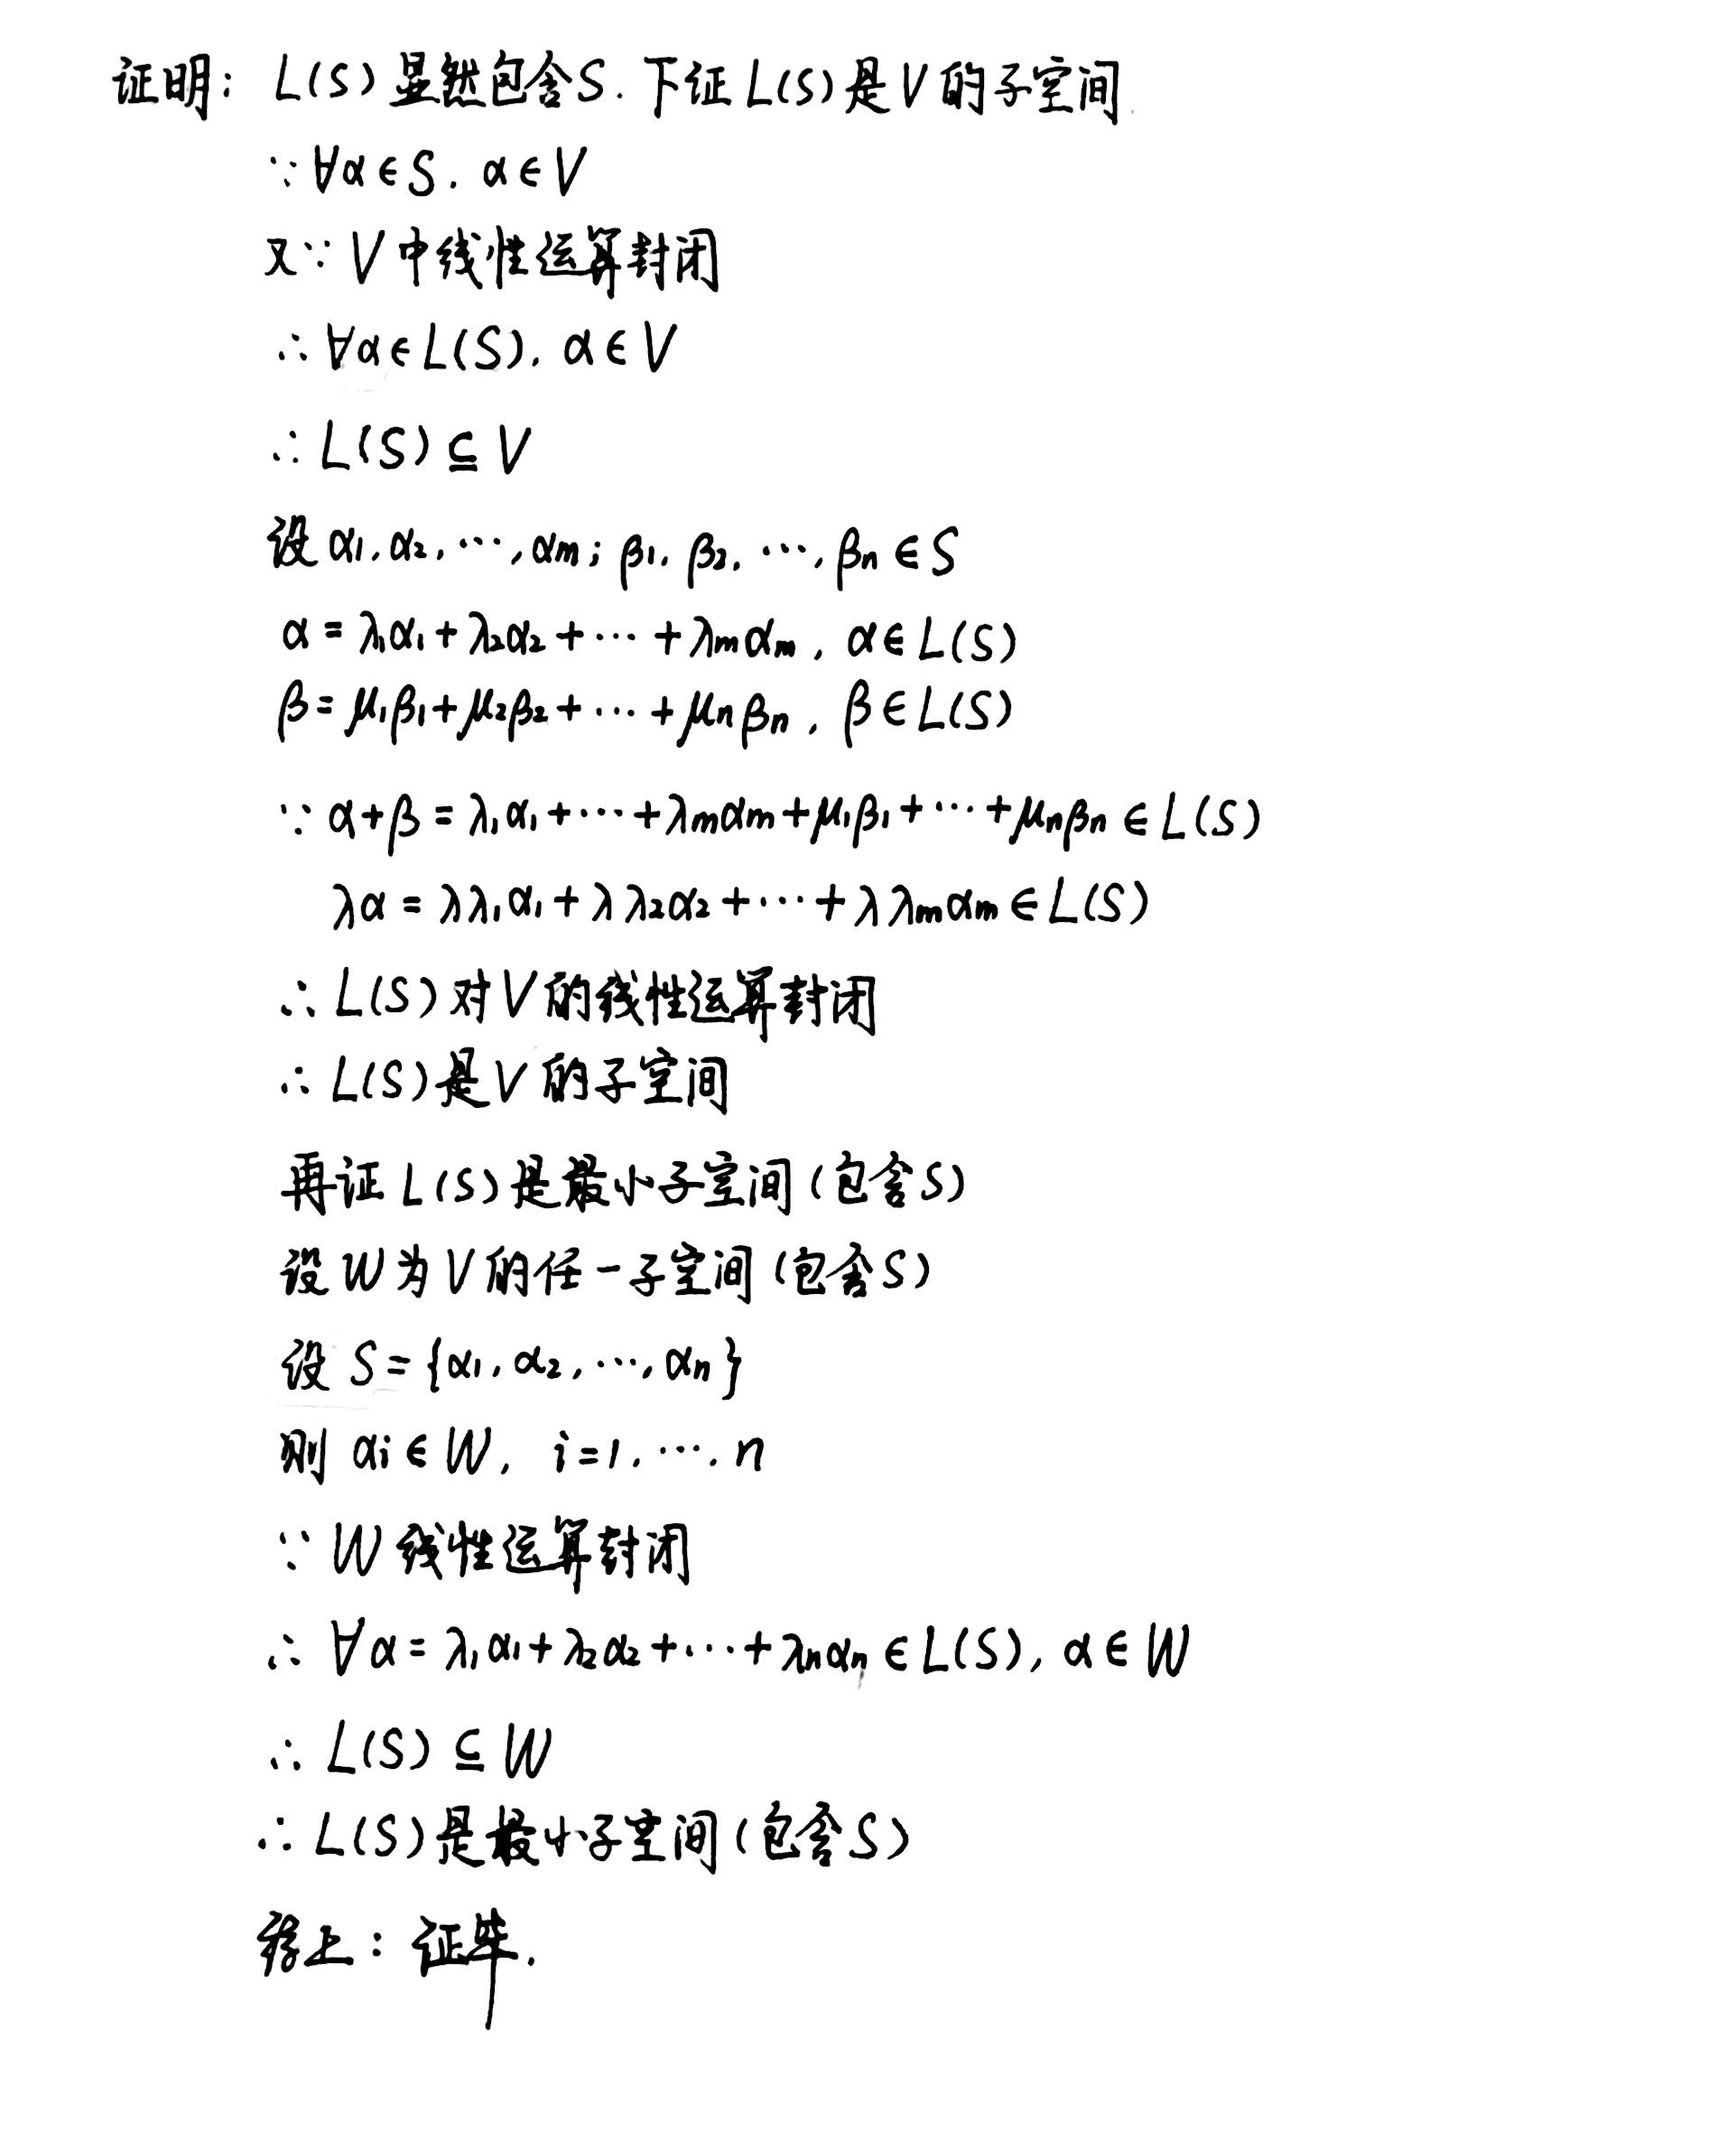 证明: L(S)显然包含S. 下证L(S)是V的子空间.
∵∀α∈S, α∈V
又∵V中线性运算封闭
∴∀α∈L(S), α∈V
∴L(S)⊆V
设α₁,α₂,⋯,αm; β₁,β₂,⋯,βn∈S
α=λ₁α₁+λ₂α₂+⋯+λmαm, α∈L(S)
β=μ₁β₁+μ₂β₂+⋯+μnβn, β∈L(S)
∵α+β=λ₁α₁+⋯+λmαm+μ₁β₁+⋯+μnβn∈L(S)
λα=λλ₁α₁+λλ₂α₂+⋯+λλmαm∈L(S)
∴L(S)对V的线性运算封闭
∴L(S)是V的子空间
再证L(S)是最小子空间(包含S)
设W为V的任一子空间(包含S)
设S={α₁,α₂,⋯,αn}
则αi∈W, i=1,⋯,n
∵W线性运算封闭
∴∀α=λ₁α₁+λ₂α₂+⋯+λnαn∈L(S), α∈W
∴L(S)⊆W
∴L(S)是最小子空间(包含S)
综上: 证毕.